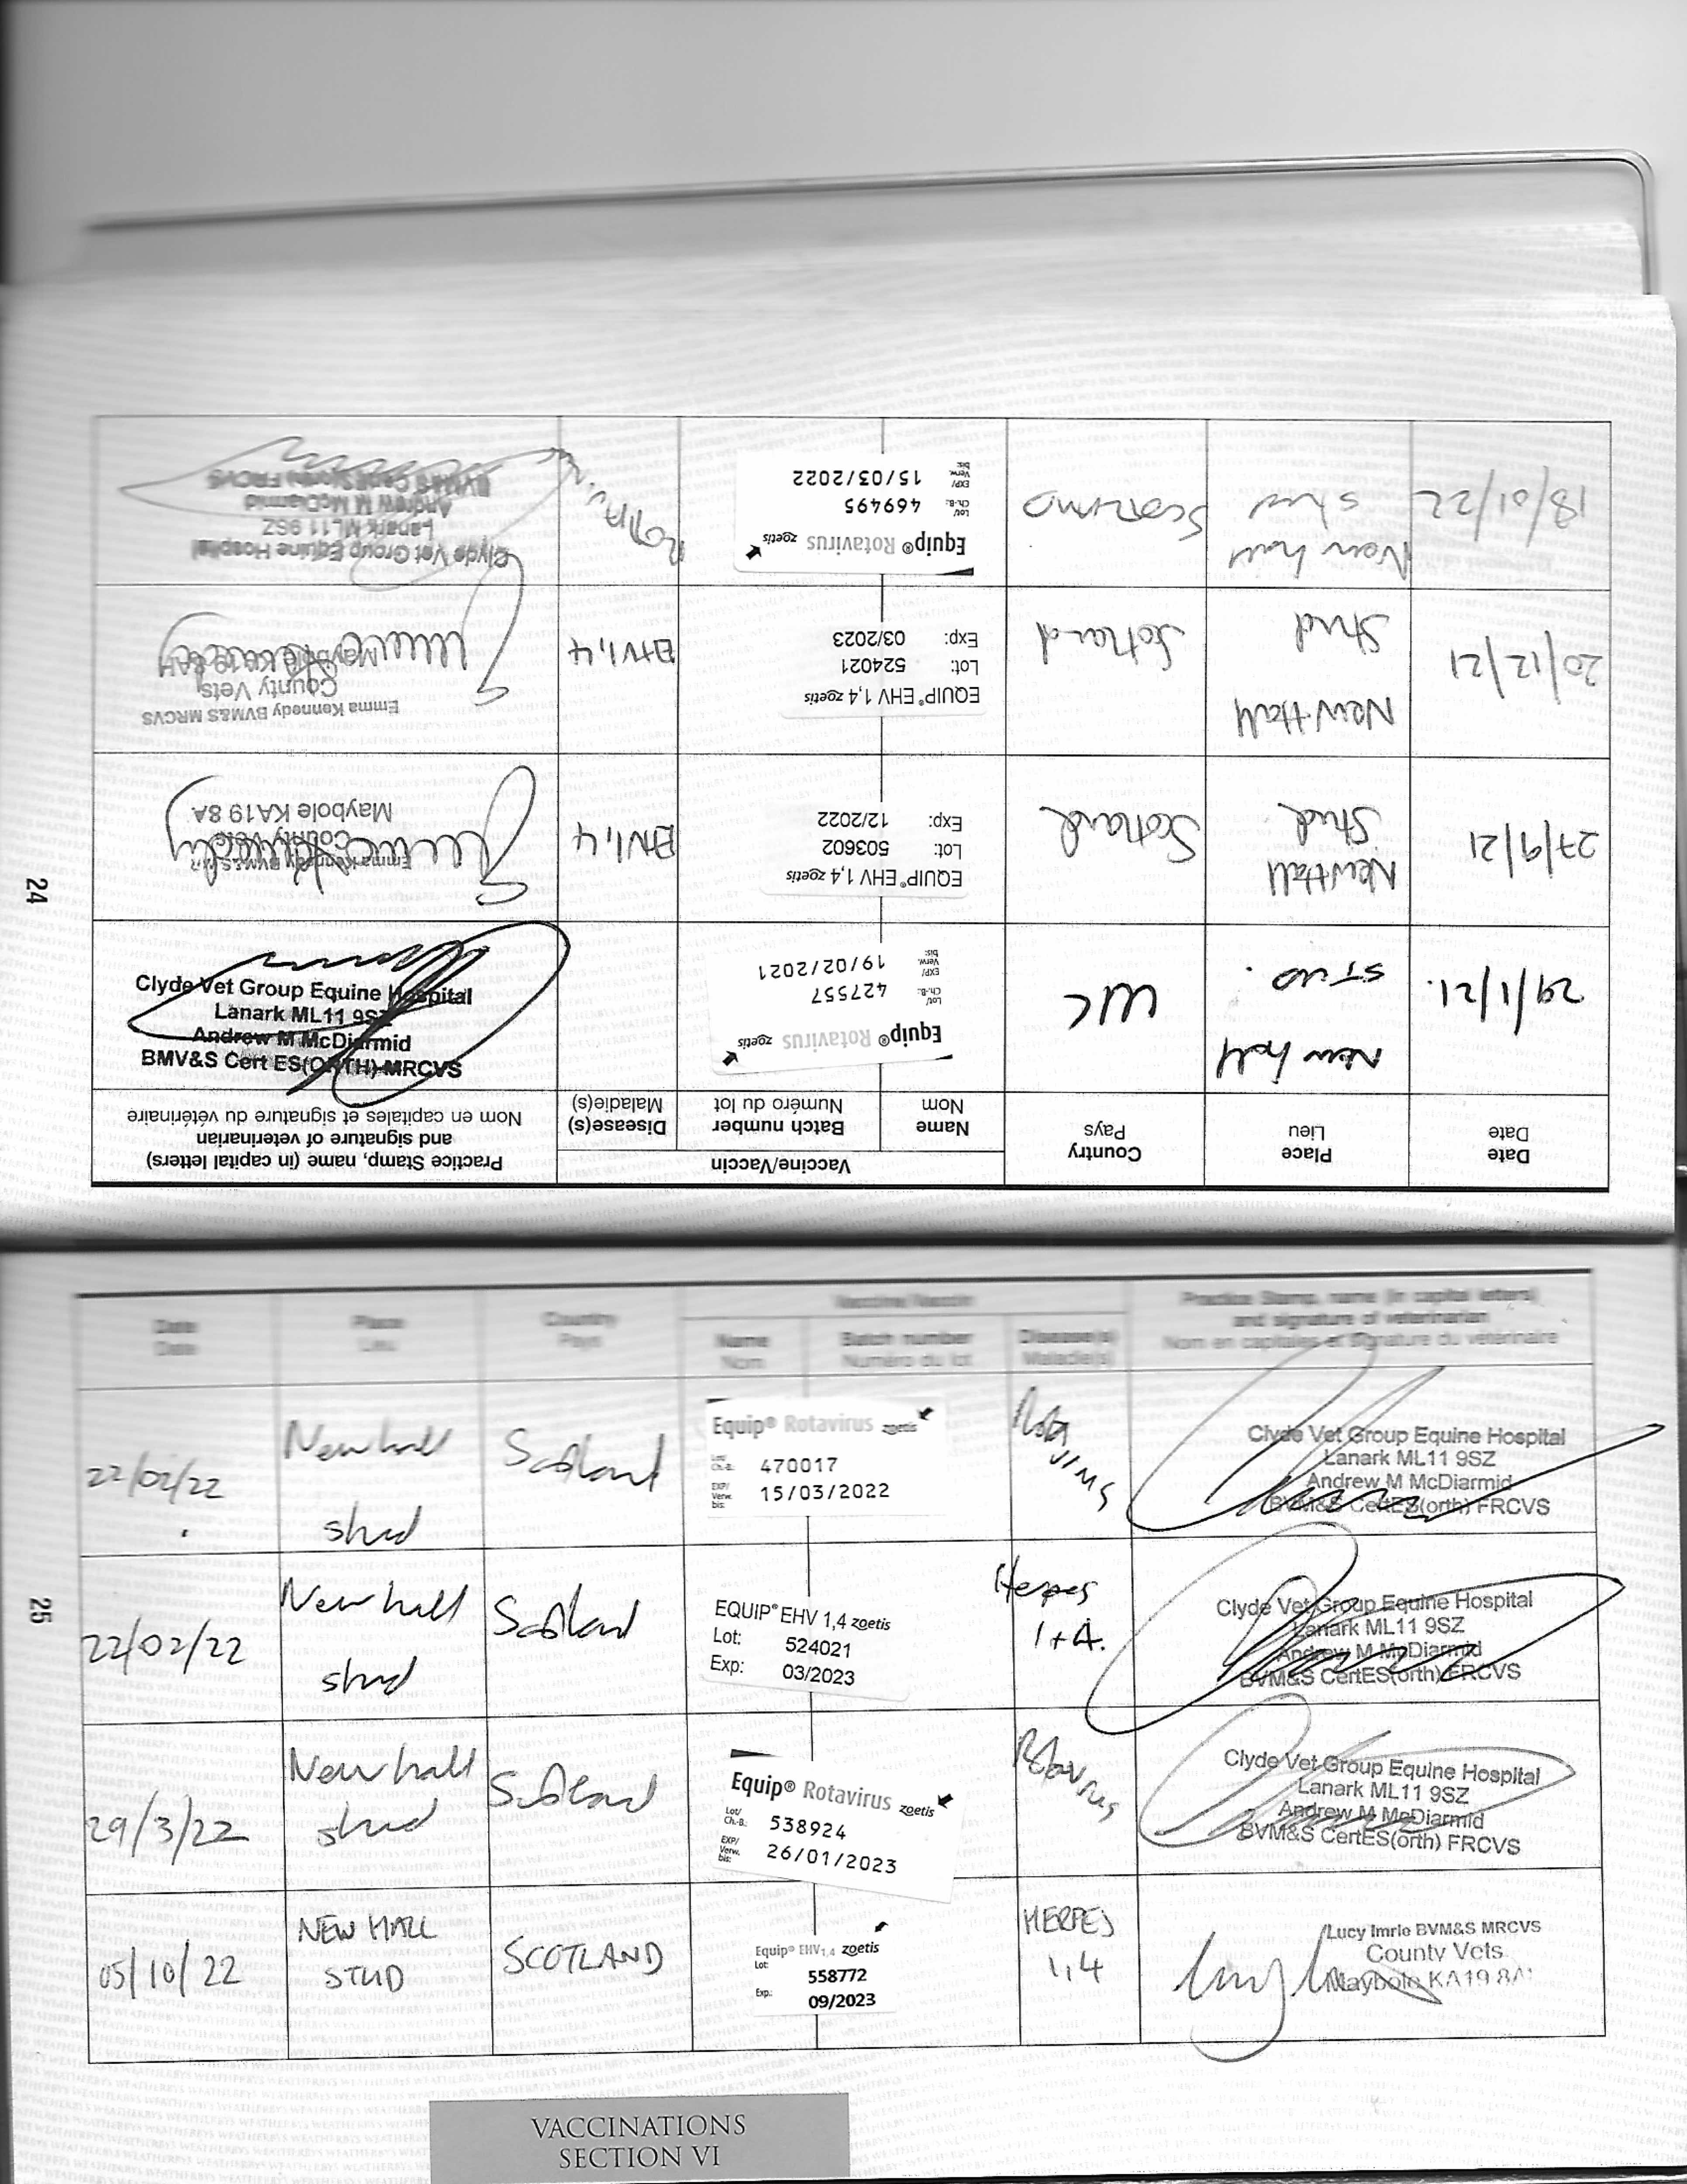 24
Date
Date
Place
Lieu
Country
Pays
Vaccine/Vaccin
Name
Nom
Batch number
Numéro du lot
Disease(s)
Maladie(s)
Practice Stamp, name (in capital letters)
and signature of veterinarian
Nom en capitales et signature du vétérinaire
29/1/21.
New hall
STUD.
UK
Equip® Rotavirus zoetis
Lot/
Ch.-B.:
427557
EXP/
Verw.
bis:
19/02/2021
Clyde Vet Group Equine Hospital
Lanark ML11 9SZ
Andrew M McDiarmid
BMV&S Cert ES(ORTH) MRCVS
27/9/21
NewHall
Stud
Scotland
EQUIP® EHV 1,4 zoetis
Lot: 503602
Exp: 12/2022
EHV1,4
Emma Kennedy BVM&S
County Vets
Maybole KA19 8A
20/12/21
NewHall
Stud
Scotland
EQUIP® EHV 1,4 zoetis
Lot: 524021
Exp: 03/2023
EHV1,4
Emma Kennedy BVM&S MRCVS
County Vets
Maybole KA19 8AH
18/01/22
New hall
stud
Scotland
Equip® Rotavirus zoetis
Lot/
Ch.-B.:
469495
EXP/
Verw.
bis:
15/03/2022
Clyde Vet Group Equine Hospital
Lanark ML11 9SZ
Andrew M McDiarmid
BVM&S FRCVS
25
Date
Date
Place
Lieu
Country
Pays
Vaccine/Vaccin
Name
Nom
Batch number
Numéro du lot
Disease(s)
Maladie(s)
Practice Stamp, name (in capital letters)
and signature of veterinarian
Nom en capitales et signature du vétérinaire
22/02/22
Newhall
stud
Scotland
Equip® Rotavirus zoetis
Lot/
Ch.-B.:
470017
EXP/
Verw.
bis:
15/03/2022
Rota
virus
Clyde Vet Group Equine Hospital
Lanark ML11 9SZ
Andrew M McDiarmid
BVM&S CertES(orth) FRCVS
22/02/22
New hall
stud
Scotland
EQUIP® EHV 1,4 zoetis
Lot: 524021
Exp: 03/2023
Herpes
1+4.
Clyde Vet Group Equine Hospital
Lanark ML11 9SZ
Andrew M McDiarmid
BVM&S CertES(orth) FRCVS
29/3/22
New hall
stud
Scotland
Equip® Rotavirus zoetis
Lot/
Ch.-B.:
538924
EXP/
Verw.
bis:
26/01/2023
Rotavirus
Clyde Vet Group Equine Hospital
Lanark ML11 9SZ
Andrew M McDiarmid
BVM&S CertES(orth) FRCVS
05/10/22
NEW HALL
STUD
SCOTLAND
Equip® EHV1,4 zoetis
Lot:
558772
Exp.:
09/2023
HERPES
1,4
Lucy Imrie BVM&S MRCVS
County Vets
Maybole KA19 8A
VACCINATIONS
SECTION VI